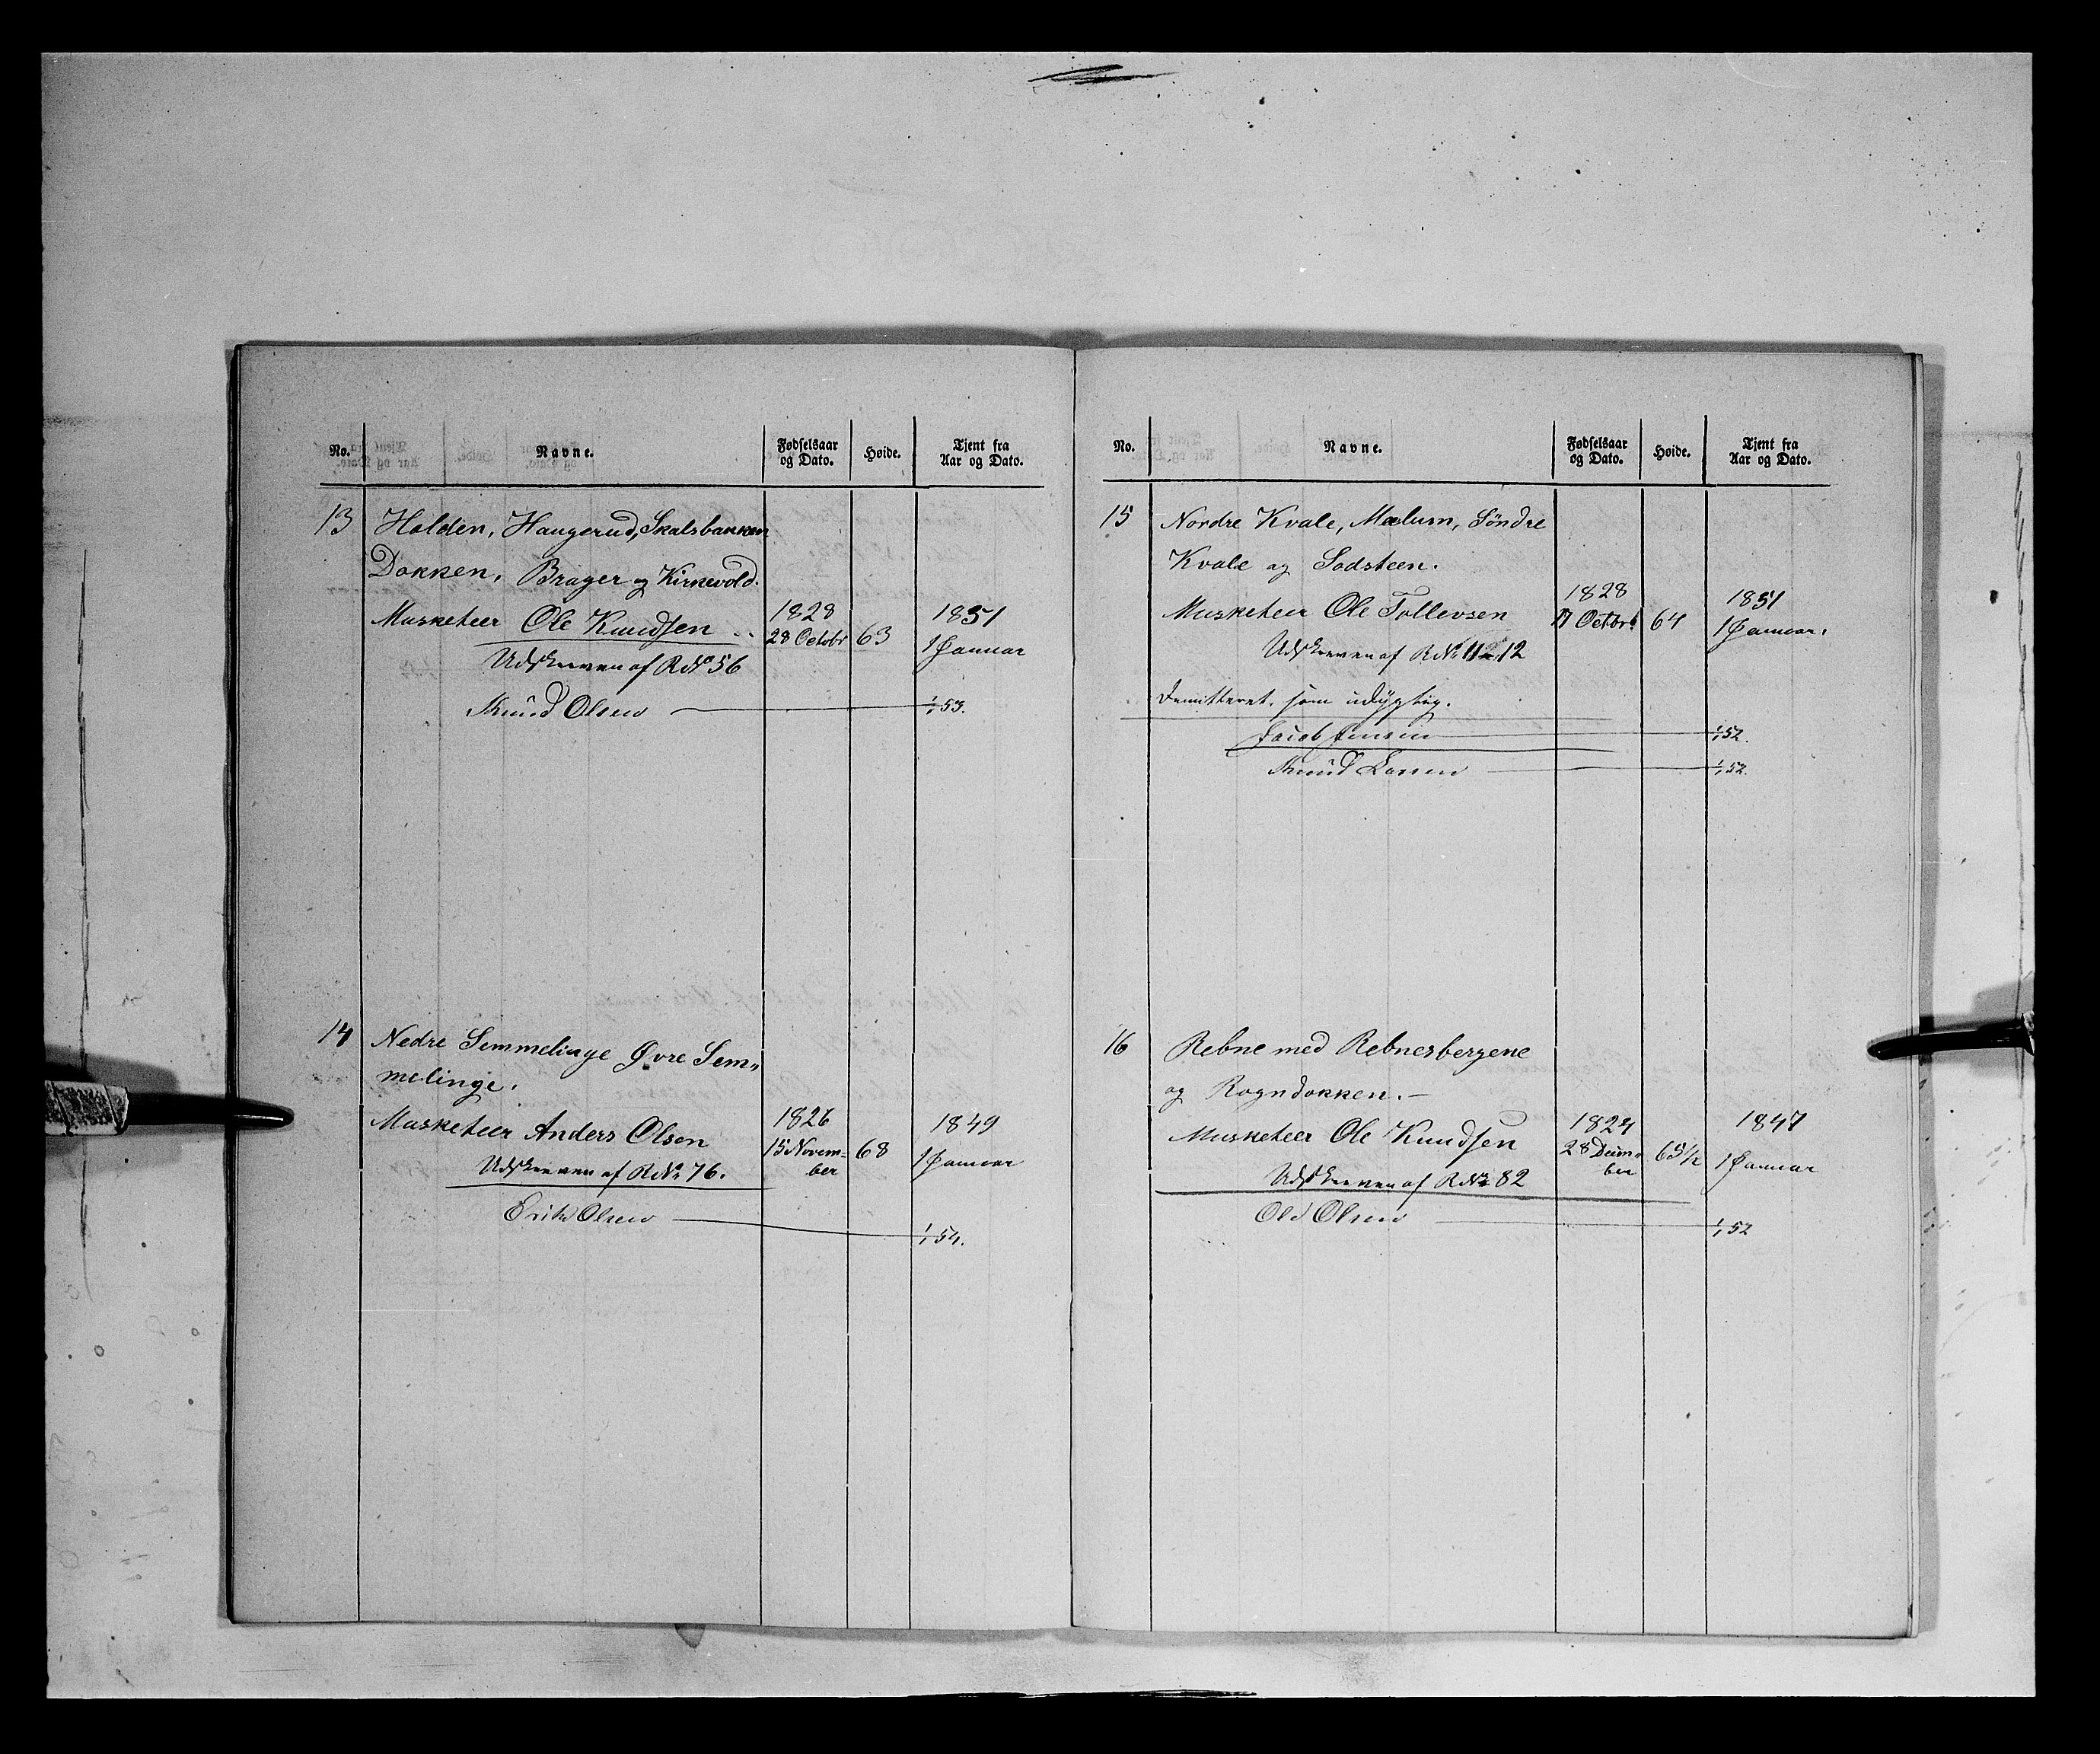 No. Navne. Fødselsaar og Dato. Høide. Tjent fra Aar og Dato.
13 Holden, Haugerud, Skalsbakken
Dokken, Brager og Kirkevold.
Musketeer Ole Knudsen 1828 28 Octobr 63 1851 1 Januar
Udskreven af R No 56
Knud Olsen 1/1 53.
14 Nedre Semmelinge Øvre Sem-
melinge.
Musketeer Anders Olsen 1826 15 Novem-ber 68 1849 1 Januar
Udskreven af R No 76.
Erik Olsen 1/1 54.
No. Navne. Fødselsaar og Dato. Høide. Tjent fra Aar og Dato.
15 Nordre Kvale, Mælum, Söndre
Kvale og Sodsteen.
Musketeer Ole Tollevsen 1828 17 Octbr 64 1851 1 Januar.
Udskreven af R No 12
Demitteret som udygtig.
Jacob Jensen 1/1 52.
Knud Larsen 1/1 52.
16 Rebne med Rebnesbergene
og Rogndokken.
Musketeer Ole Knudsen 1824 28 Decem-ber 65 1/2 1847 1 Januar
Udskreven af R No 82
Ole Olsen 1/1 52